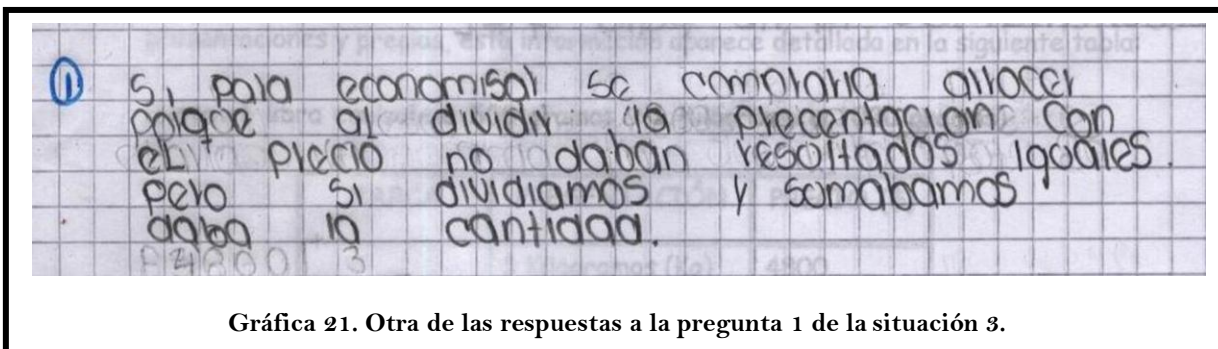 ① Si pala economisal se complaria allocer
polque al dividir la precentacione con
eL precio no daban resoltados igoales.
pero Si dividiamos y somabamos
daba la cantidad.
Kilogramos (Kg) 4800
Gráfica 21. Otra de las respuestas a la pregunta 1 de la situación 3.